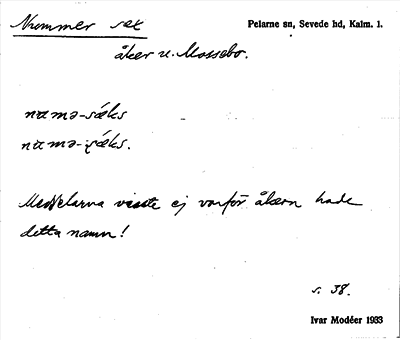 Nummer sex
Pelarne sn, Sevede hd, Kalm. l.
åker u. Mossebo.
nɷmə-sǽks
nɷmə-sǽks.
Meddelarna visste ej varför åkern hade
detta namn!
s. 38.
Ivar Modéer 1933